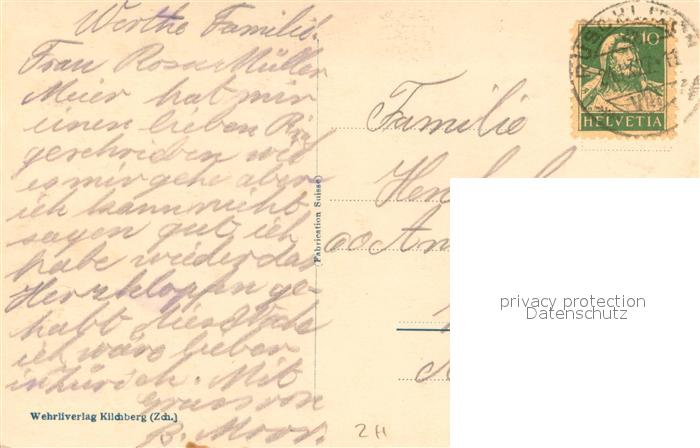 Werthe Familie.
Frau Rosa Müller
Meier hat mir
einen lieben
geschrieben wie
es mir gehe aber
ich kann nicht
sagen gut ich
habe wieder das
Herzklopfen ge-
habt diese
ich wäre lieber
in Zürich. Mit
Gruss von
B. Moor.
Wehrliverlag Kilchberg (Zch.)
(Fabrication Suisse)
Familie
10
HELVETIA
RÜSCHLIKON
privacy protection
Datenschutz
ZH